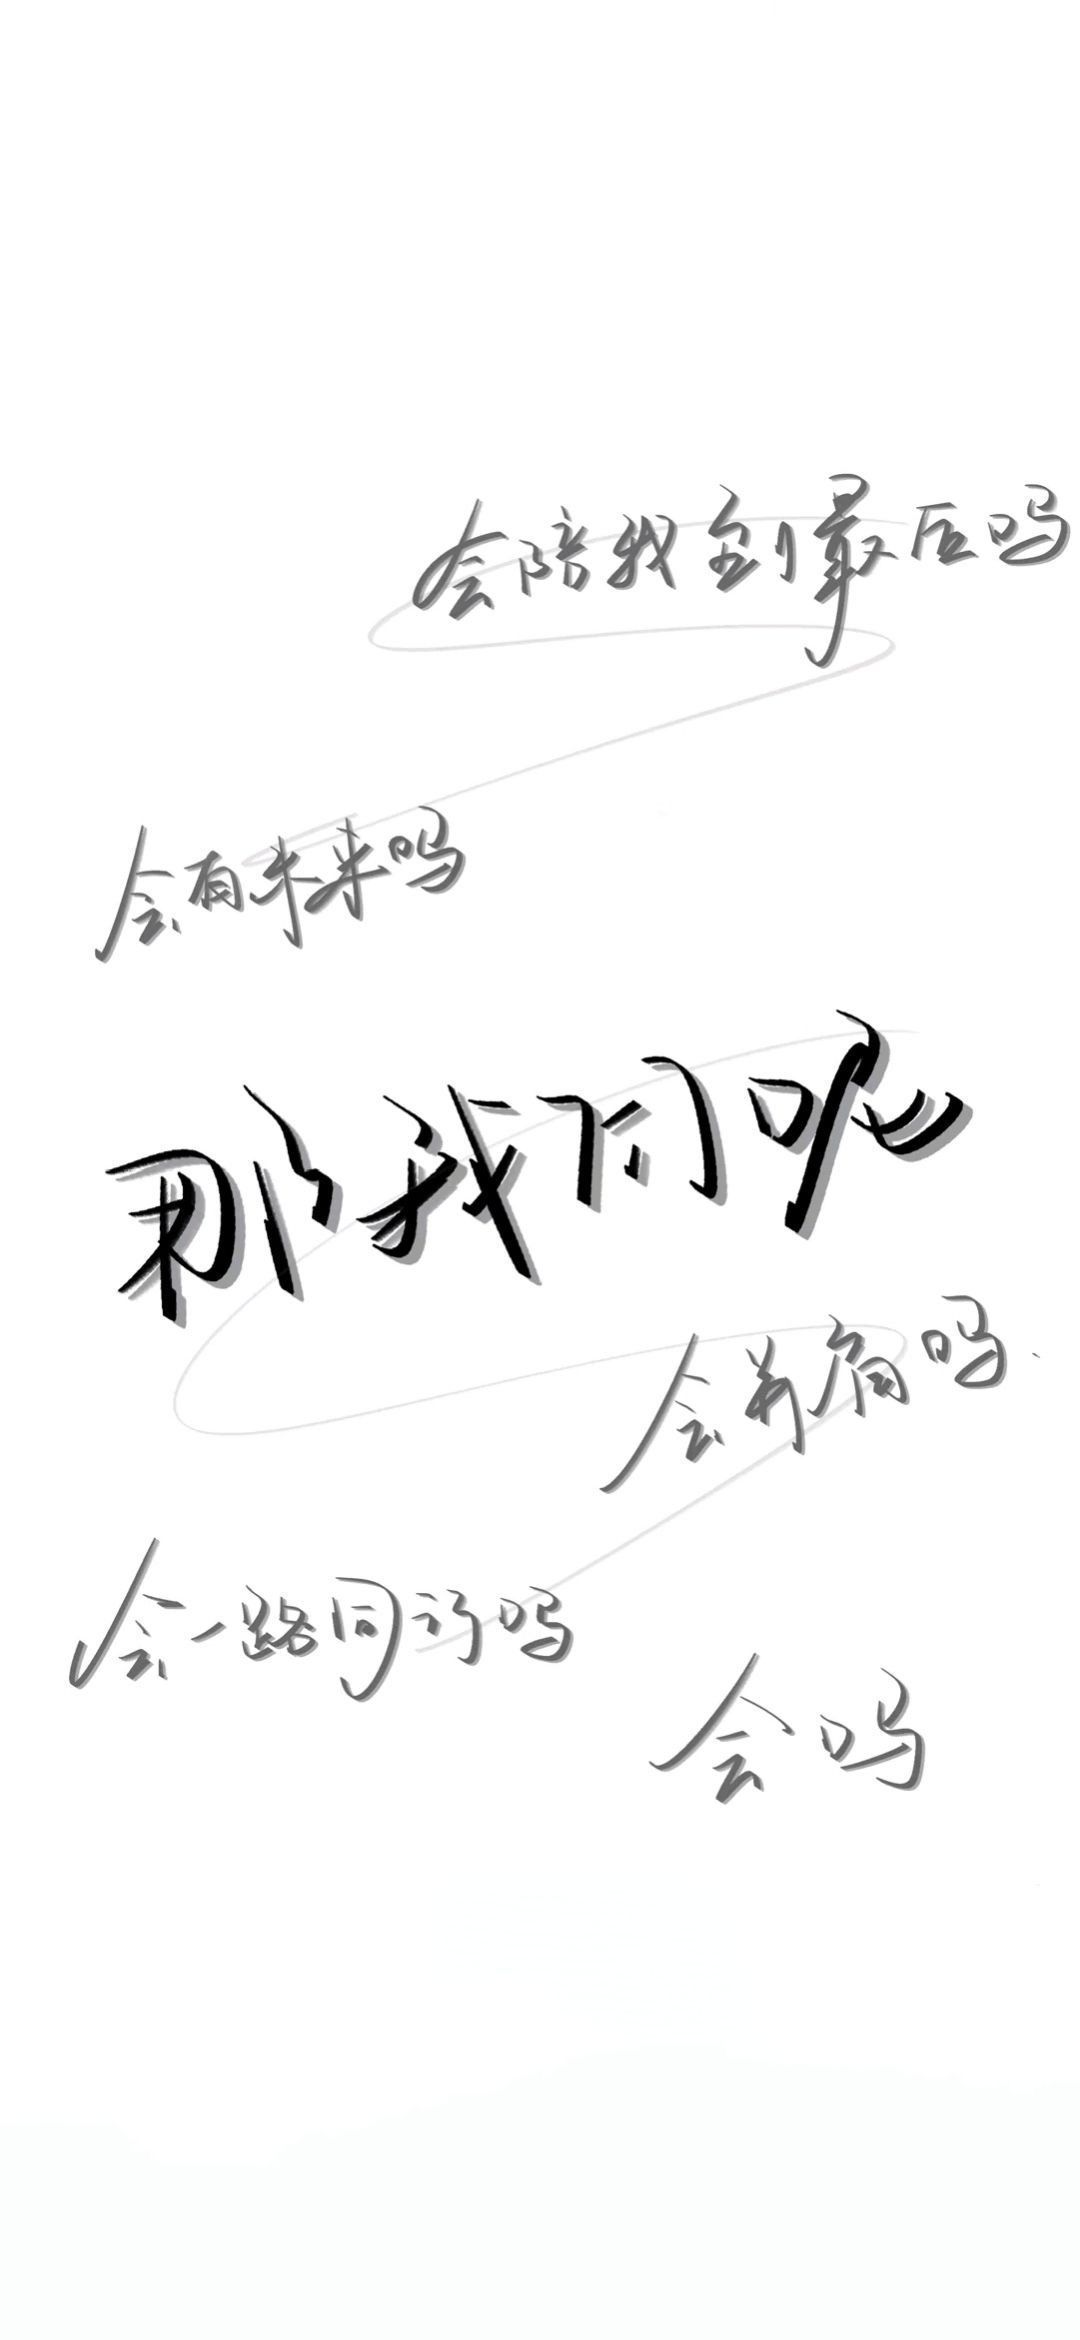 会陪我到最后吗
会有未来吗
那我们呢
会并肩吗
会一路同行吗
会吗